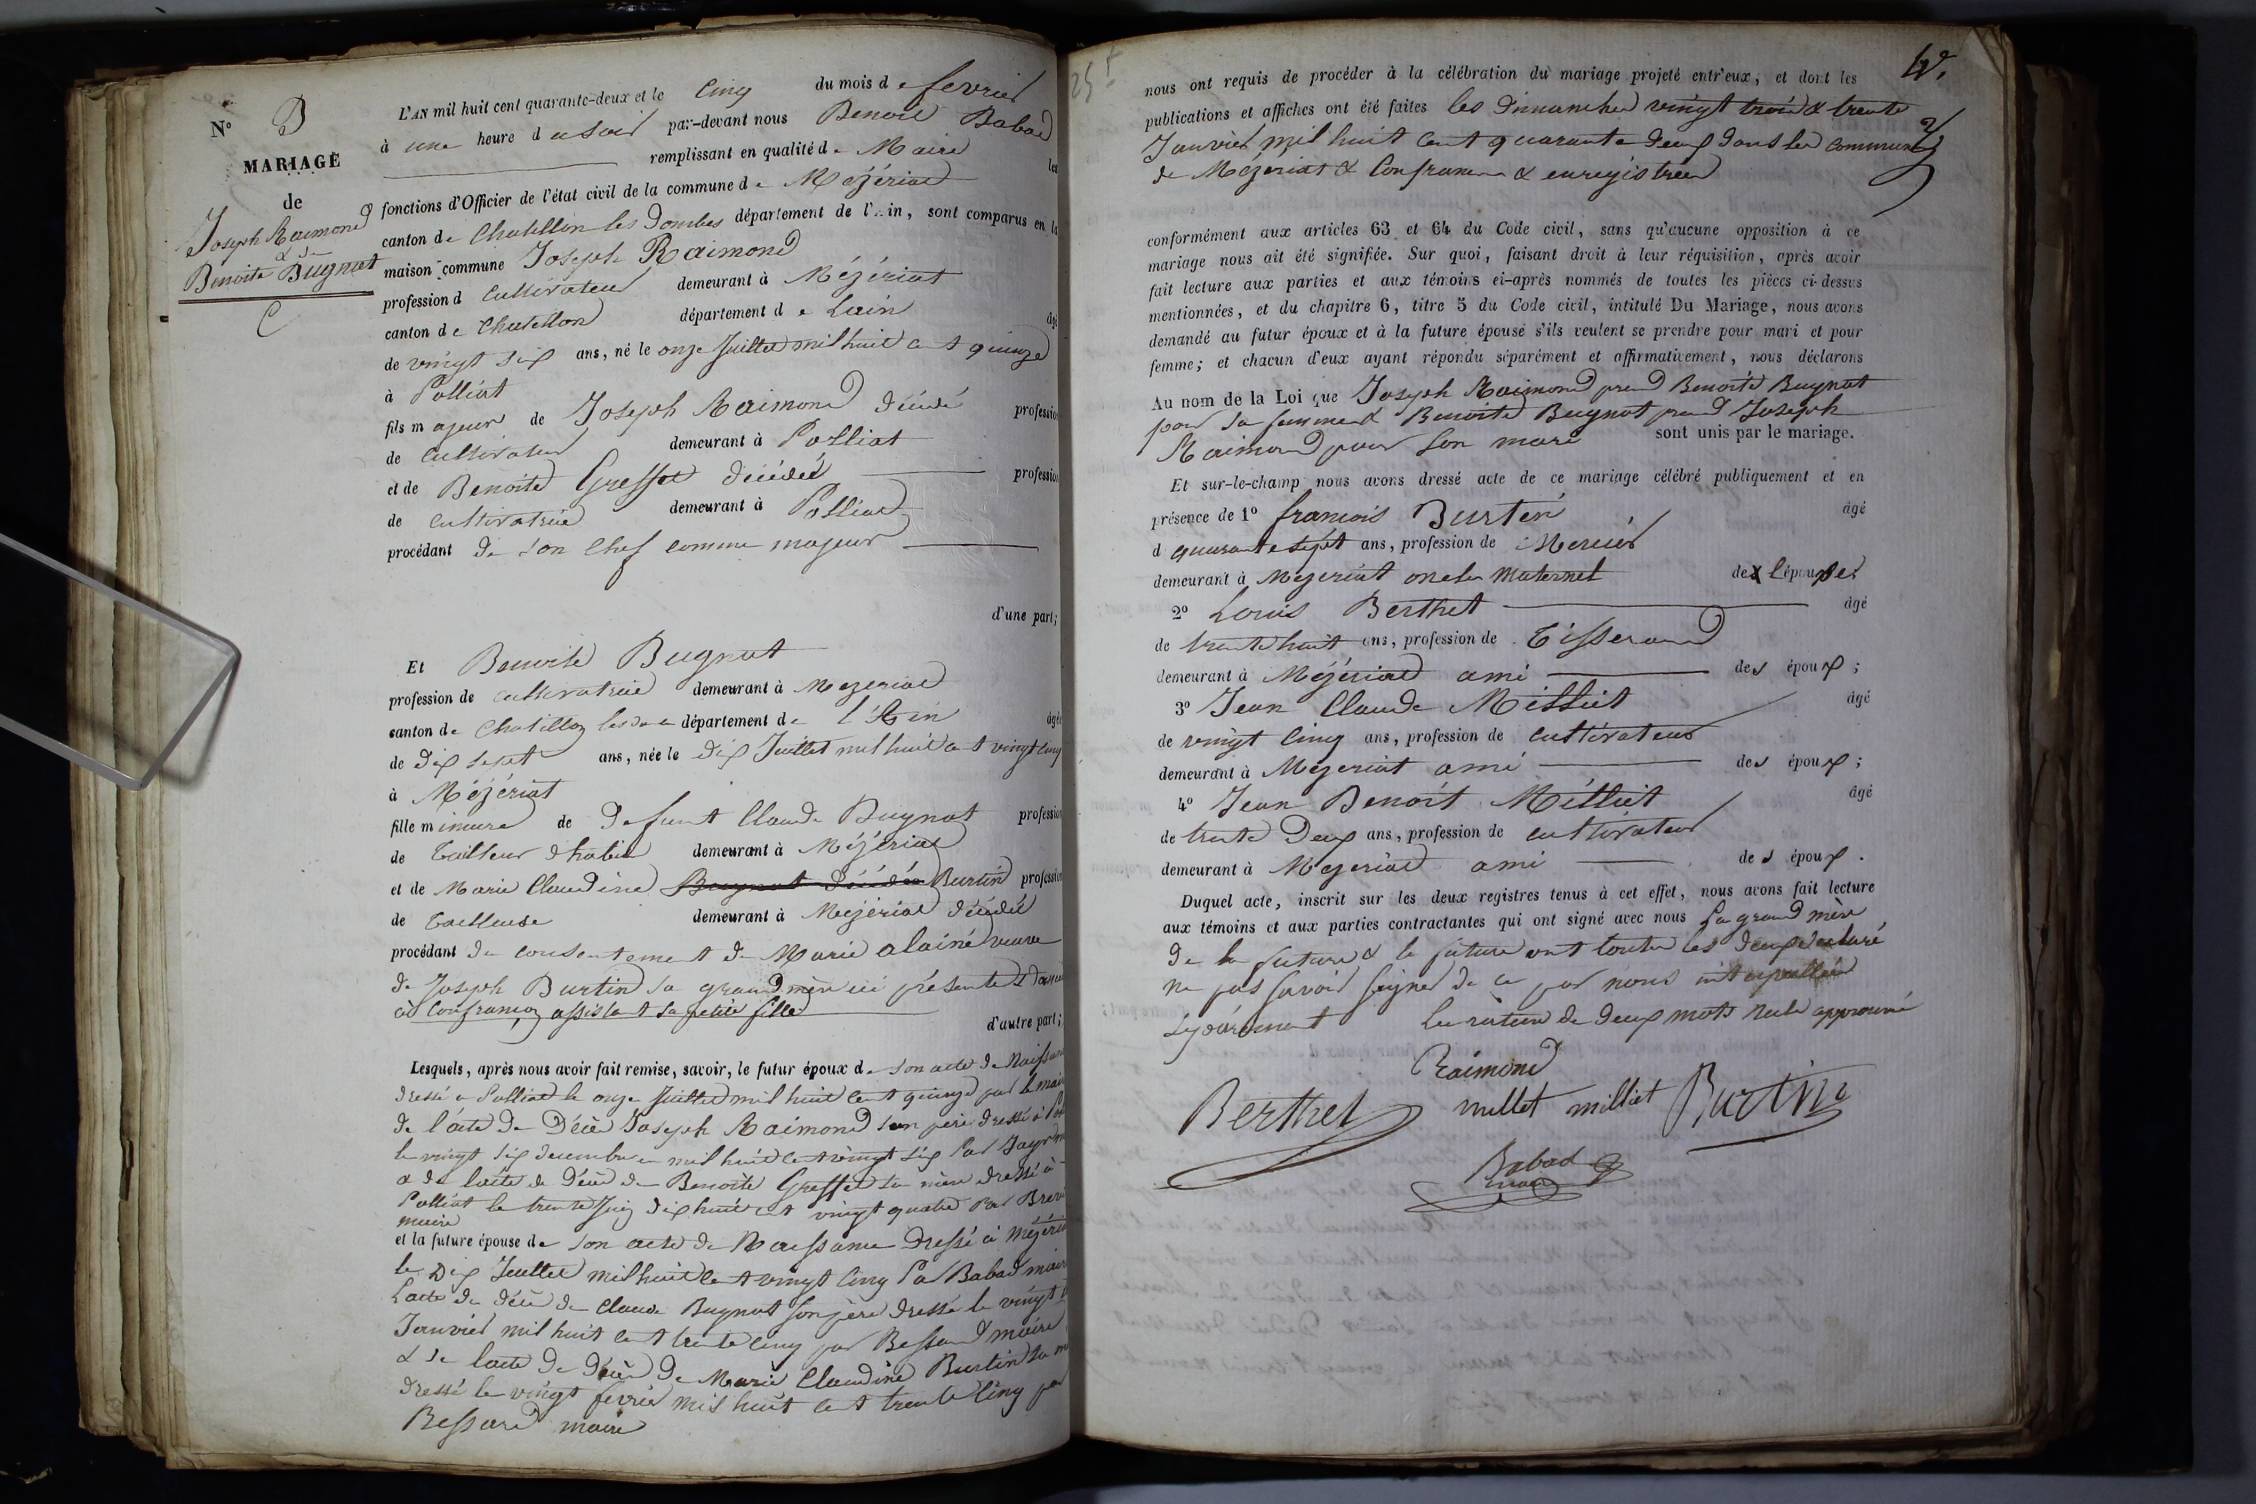 N° 3
MARIAGE
de
Joseph Raimond
& de
Benoite Bugnat
L'AN mil huit cent quarante-deux et le cinq du mois de fevrier
à une heure du soir par-devant nous Benoit Babad
remplissant en qualité de Maire les
fonctions d'Officier de l'état civil de la commune de Mézériat
canton de Chatillon les Dombes département de l'Ain, sont comparus en la
maison commune Joseph Raimond
profession d cultivateur demeurant à Mézériat
canton de Chatillon département de Lain âgé
de vingt six ans, né le onze Juillet mil huit cent quinze
à Polliat
fils majeur de Joseph Raimond décédé profession
de cultivateur demeurant à Polliat
et de Benoite Greffet décédée profession
de cultivatrice demeurant à Polliat
procédant de son chef comme majeur
d'une part;
Et Benoite Bugnat
profession de cultivatrice demeurant à Mezeriat
canton de Chatillon les département de l'Ain âgée
de dix sept ans, née le dix Juillet mil huit cent vingt cinq
à Mézériat
fille mineure de defunt Claude Bugnat profession
de Tailleur d'habit demeurant à Mézériat
et de Marie Claudine Bugnat décédée Burtin profession
de Tailleuse demeurant à Mezériat décédée
procédant du consentement de Marie alainé veuve
de Joseph Burtin sa grand mère ici présente &
à Confrançon assistant sa petite fille
d'autre part;
Lesquels, après nous avoir fait remise, savoir, le futur époux de son acte de Naissance
dressé à Polliat le onze Juillet mil huit cent quinze par le maire
de l'acte de Décès Joseph Raimond son père dressé à
le vingt six decembre mil huit cent vingt six Par
& de l'acte de décès de Benoite Greffet sa mère dressé à
Polliat le trente Juin dix huit cent vingt quatre Par
maire
et la future épouse de son acte de Naissance Dressé à Mézériat
le Dix Juillet mil huit cent vingt cinq Par Babad maire
Lacte de décès de Claude Bugnat son père dressé le vingt
Janvier mil huit cent trente cinq par Bessard maire
& de lacte de décès de Marie Claudine Burtin sa
dressé le vingt fevrier mil huit cent trente cinq par
Bessard maire
25
nous ont requis de procéder à la célébration du mariage projeté entr'eux, et dont les
publications et affiches ont été faites les dimanches vingt trois & trente
Janvier mil huit cent quarante deux dans les communes
de Mézeriat & Confrancon & enregistrées
conformément aux articles 63 et 64 du Code civil, sans qu'aucune opposition à ce
mariage nous ait été signifiée. Sur quoi, faisant droit à leur réquisition, après avoir
fait lecture aux parties et aux témoins ci-après nommés de toutes les pièces ci-dessus
mentionnées, et du chapitre 6, titre 5 du Code civil, intitulé Du Mariage, nous avons
demandé au futur époux et à la future épouse s'ils veulent se prendre pour mari et pour
femme; et chacun d'eux ayant répondu séparément et affirmativement, nous déclarons
Au nom de la Loi que Joseph Raimond prend Benoite Bugnat
pour sa femme & Benoite Bugnat prend Joseph
Raimond pour son mari sont unis par le mariage.
Et sur-le-champ nous avons dressé acte de ce mariage célébré publiquement et en
présence de 1° francois Burtin âgé
d quarante sept ans, profession de Mercier
demeurant à Mezeriat oncle maternel de l'épouse.
2° Louis Berthet âgé
de trente huit ans, profession de Tisserand
demeurant à Mézériat ami des époux;
3° Jean Claude Milliet âgé
de vingt cinq ans, profession de cultivateur
demeurant à Mezeriat ami des époux;
4° Jean Benoit Milliet âgé
de trente deux ans, profession de cultivateur
demeurant à Mezeriat ami des époux.
Duquel acte, inscrit sur les deux registres tenus à cet effet, nous avons fait lecture
aux témoins et aux parties contractantes qui ont signé avec nous La grand mère
de la future & la future ont toutes les deux declaré
ne pas savoir signer de ce par nous interpellées
séparément La rature de deux mots nuls approuvé
Raimond
Berthet millet milliet Burtin
Babad
maire